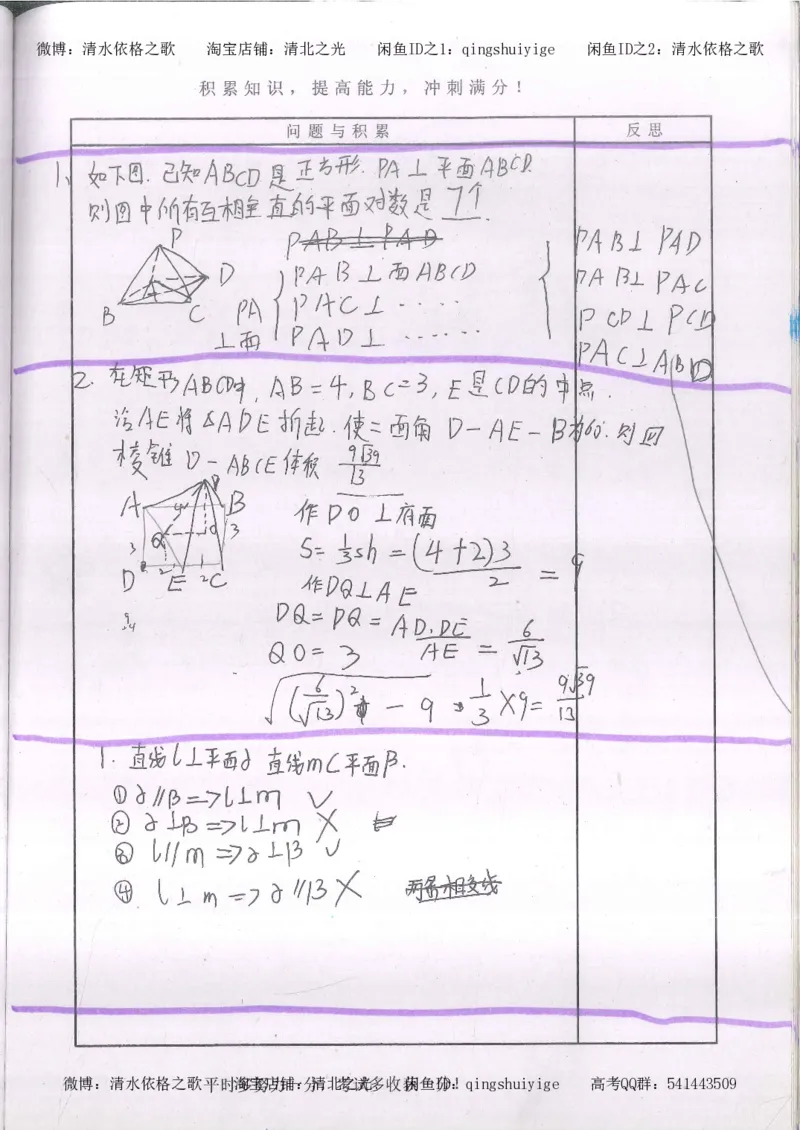 微博：清水依格之歌 淘宝店铺：清北之光 闲鱼ID之1：qingshuiyige 闲鱼ID之2：清水依格之歌
积累知识，提高能力，冲刺满分！
问题与积累 反思
1、如下图.已知ABCD是正方形.PA⊥平面ABCD.
则图中所有互相垂直的平面对数是 7个.
PAB⊥PAD
P
D
A
B
C
PA
⊥面
PAB⊥面ABCD
PAC⊥.....
PAD⊥......
PAB⊥PAD
PAB⊥PAC
PCD⊥PCD
PAC⊥ABD
2.在矩形ABCD中,AB=4,BC=3,E是CD的中点.
沿AE将△ADE折起.使二面角D-AE-B为60.则四
棱锥D-ABCE体积 9√39/13
A B
Q O 3
3
D 2 E 2 C
作DO⊥底面
S=1/3sh=(4+2)3/2=9
作DQ⊥AE
DQ=DQ=AD·DE/AE=6/√13
QO=3
√(6/√13)²-9·1/3×9=9√39/13
1.直线l⊥平面α 直线m⊂平面β.
①α∥β=>l⊥m √
②α⊥β=>l⊥m ×
③l∥m=>α⊥β √
④l⊥m=>α∥β× 两条相交线
微博：清水依格之歌 淘宝店铺：清北之光 闲鱼ID：qingshuiyige 高考QQ群：541443509